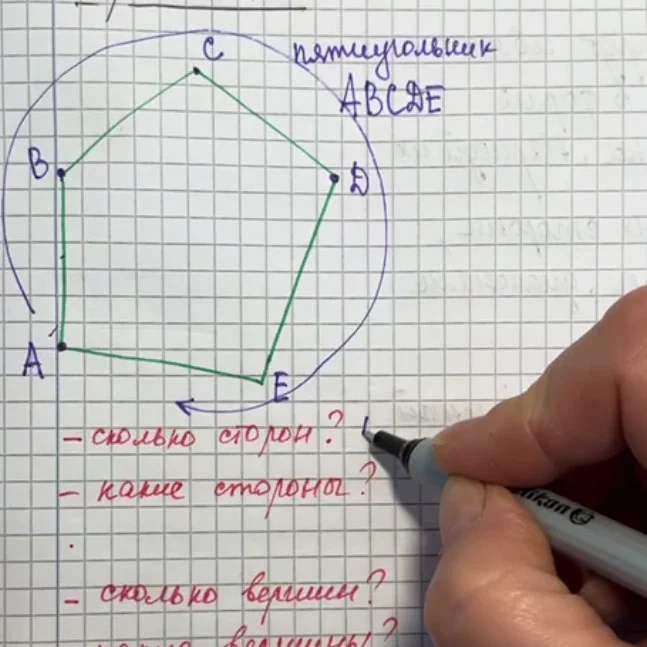 C
пятиугольник
ABCDE
B
D
A
E
- сколько сторон?
- какие стороны?
.
- сколько вершин?
вершины?